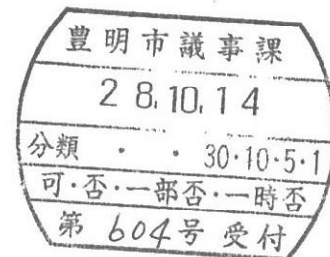 豊明市議事課
28.10.14
分類 ・ ・ 30・10・5・1
可・否・一部否・一時否
第 604号 受付